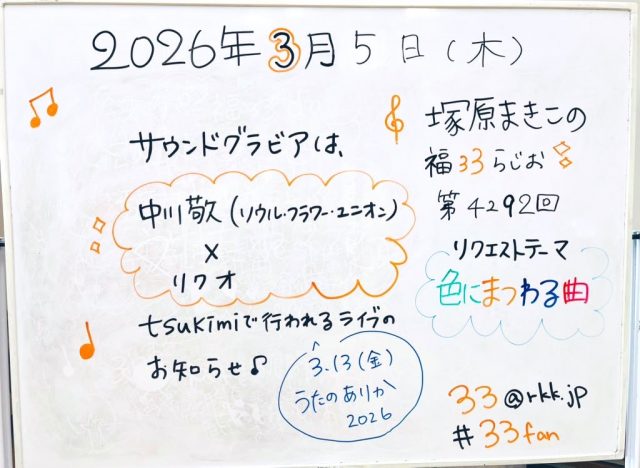 2026年3月5日(木)
サウンドグラビアは、
中川敬(ソウル・フラワー・ユニオン)
×
リクオ
tsukimiで行われるライブの
お知らせ♪
3.13(金)
うたのありか
2026
塚原まきこの
福33らじお
第4292回
リクエストテーマ
色にまつわる曲
33@rkk.jp
#33fan